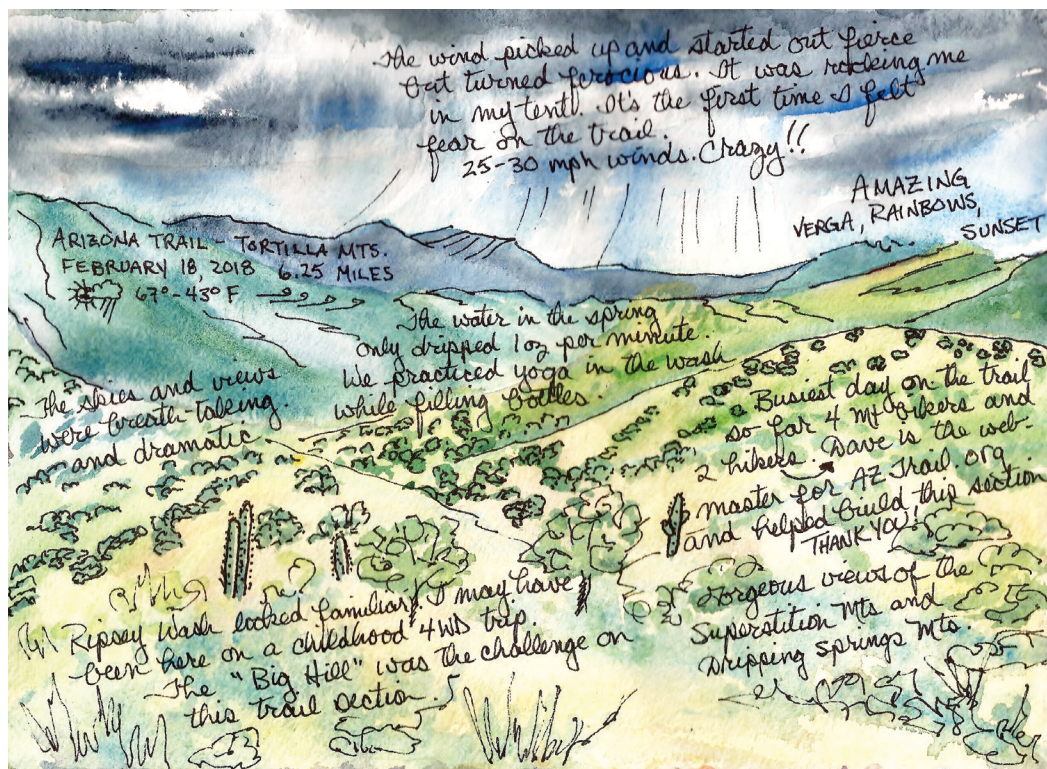 The wind picked up and started out fierce
but turned ferocious. It was rocking me
in my tent!. It's the first time I felt
fear on the trail.
25-30 mph winds. Crazy!!
AMAZING
VERGA, RAINBOWS,
SUNSET
ARIZONA TRAIL - TORTILLA MTS.
FEBRUARY 18, 2018 6.25 MILES
67°-43°F
The water in the spring
only dripped 1oz per minute.
We practiced yoga in the wash
while filling bottles.
The skies and views
were breath-taking.
and dramatic
Busiest day on the trail
so far 4 Mt bikers and
2 hikers. Dave is the web-
master for AZ Trail.org
and helped build this section
THANK YOU!
Gorgeous views of the
Superstition Mts and
Dripping Springs Mts.
Ripsey Wash looked familiar. I may have
been here on a childhood 4WD trip.
The "Big Hill" was the challenge on
this trail section.